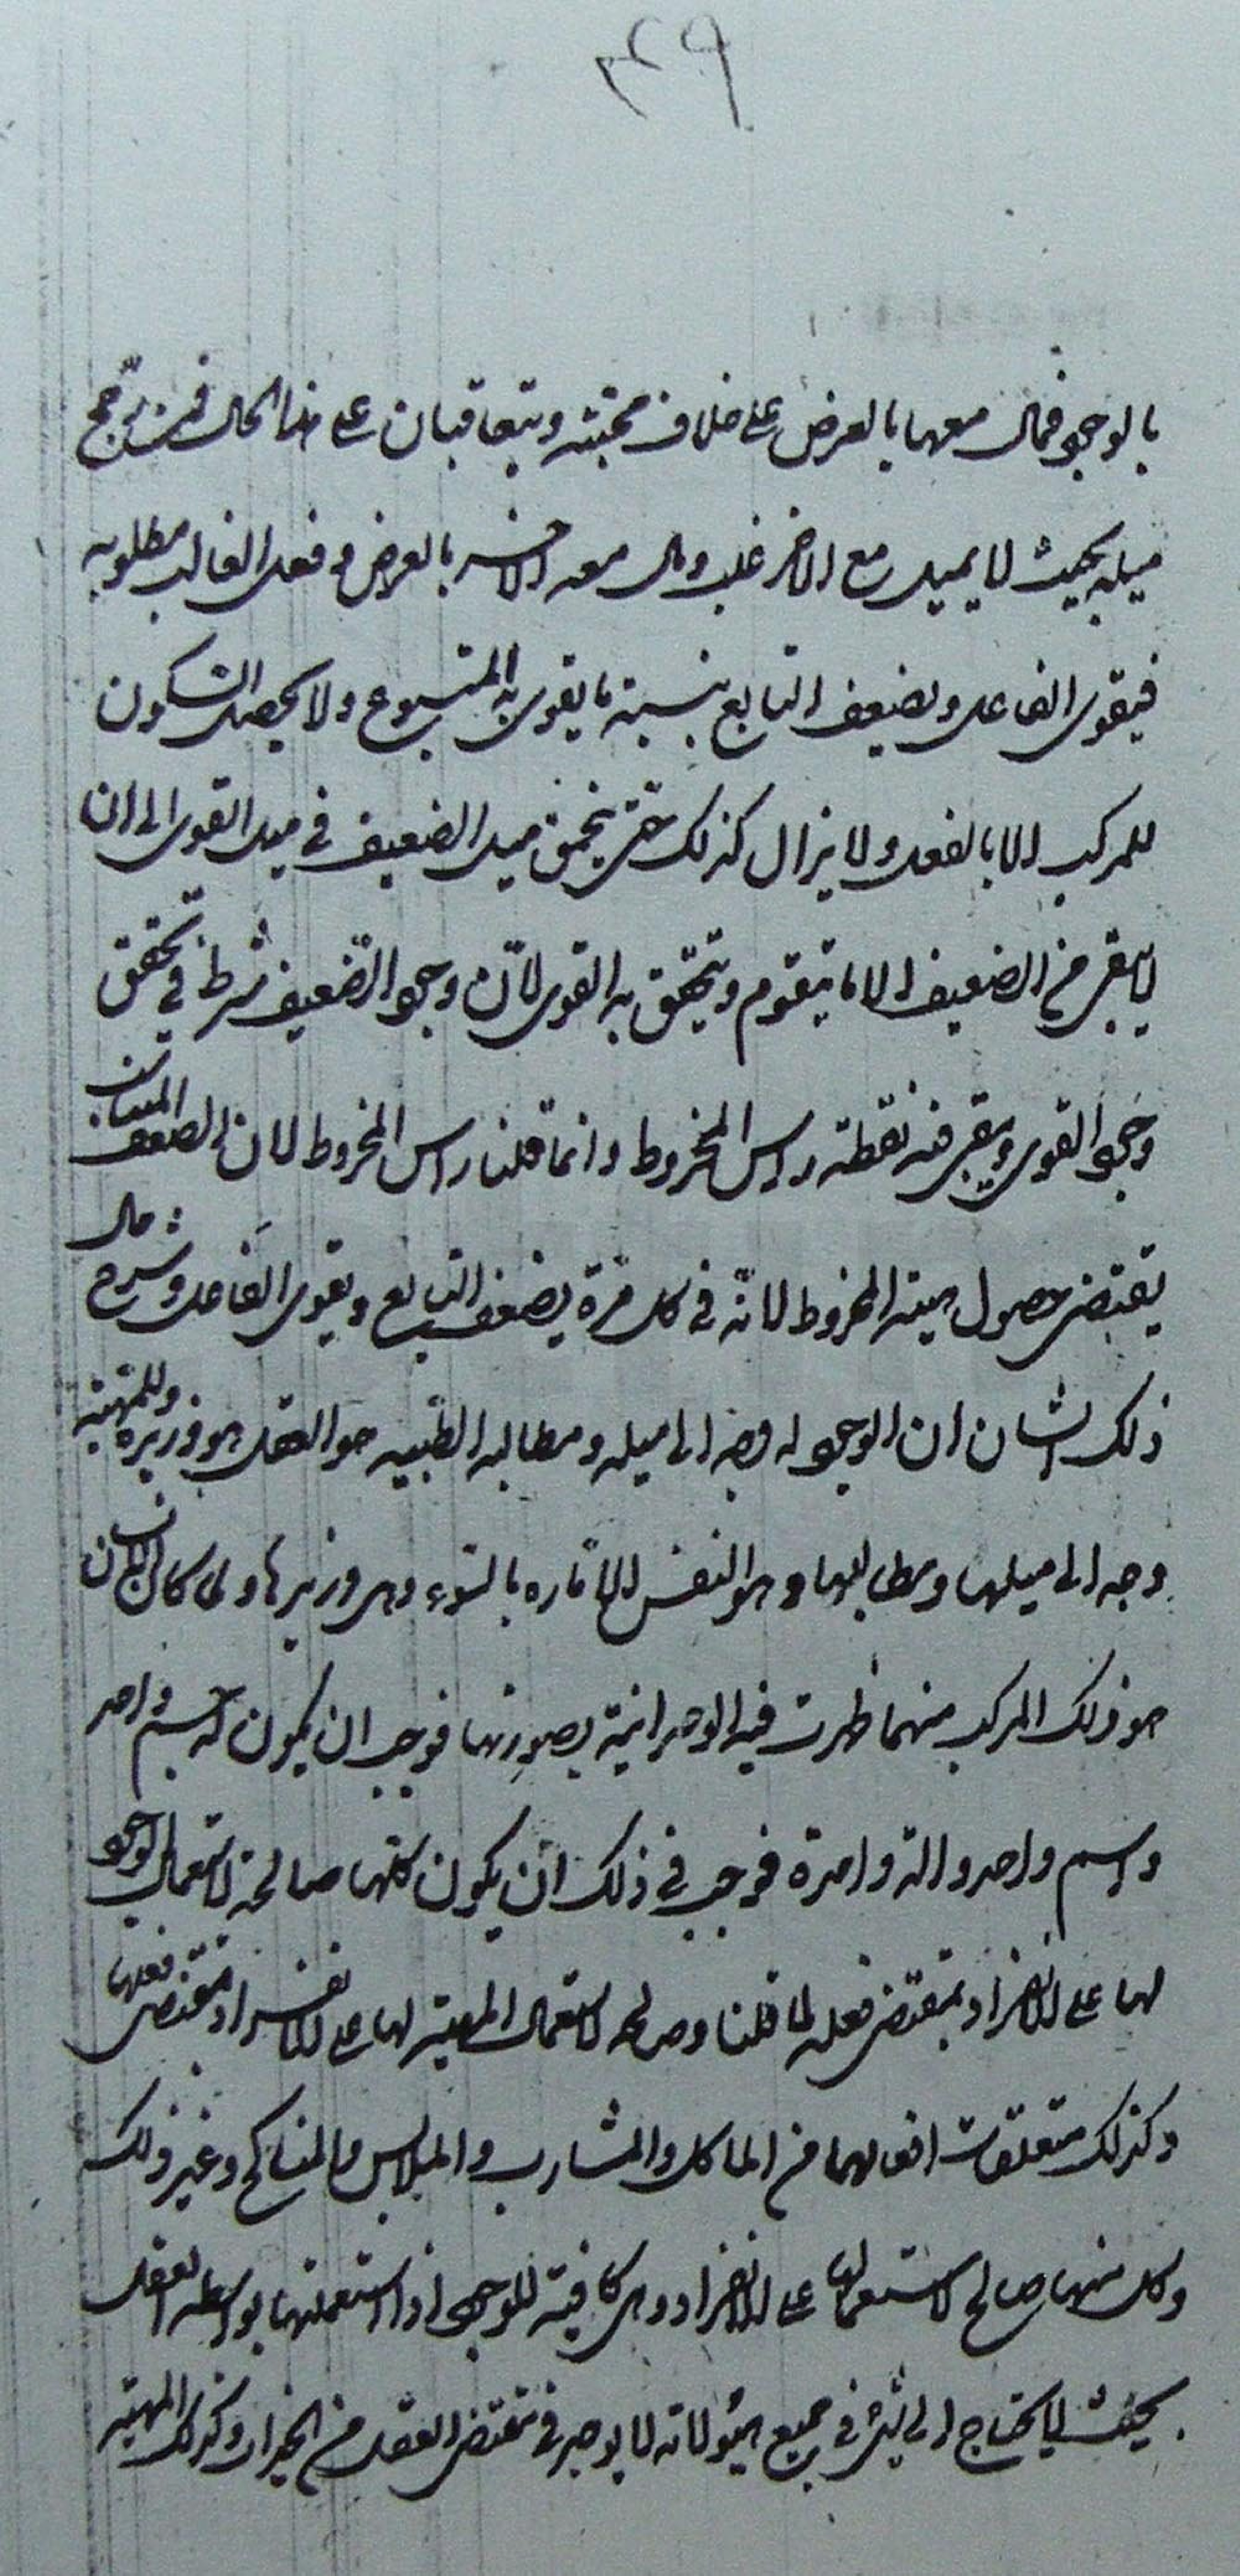 ٣٤٩
بالوجود فمال معها بالعرض على خلاف محبته ويتعاقبان على هذا الحال فمن ترجح
ميله بحيث لا يميل مع الاخر غلب ومال معه الاخر بالعرض وفعل الغالب مطلوبه
فيقوى الفاعل ويضعف التابع بنسبة ما يقوى به المتبوع ولا يحصل السكون
للمركب الا بالفعل ولا يزال كذلك حتى ينمحق ميل الضعيف في ميل القوى الى ان
لا يبقى من الضعيف الا ما يتقوم ويتحقق به القوى لان وجود الضعيف شرط في تحقق
وجود القوى ويبقى منه نقطة راس المخروط وانما قلنا راس المخروط لان الضعف
يقتضى حصول هيئة المخروط لانه في كل مرة يضعف التابع ويقوى الفاعل وشرح حال
ذلك الشان ان الوجود له وجه الى ميله ومطالبه الطيبة هو العقل هو وزيره وللمهية
وجه الى ميلها ومطالبها وهو النفس الامارة بالسوء وهى وزيرها ولما كان الانسان
هو ذلك المركب منهما ظهرت فيه الوحدانية بصورتها فوجب ان يكون له جسم واحد
واسم واحد والة واحدة فوجب في ذلك ان يكون كلها صالحة لاستعمال الوجود
لها على الانفراد بمقتضى فعله لما قلنا وصالحة لاستعمال المهية لها على الانفراد بمقتضى فعلها
وكذلك متعلقات افعالهما من الماكل والمشارب والملابس والمناكح وغير ذلك
وكل منهما صالح لاستعمالها على الانفراد وهى كافية للوجود اذا استعملتها بواسطة العقل
بحيث لا يحتاج الى شىء في جميع ميولاته لا يوجد في مقتضى العقل من الخيرات وكذلك المهية